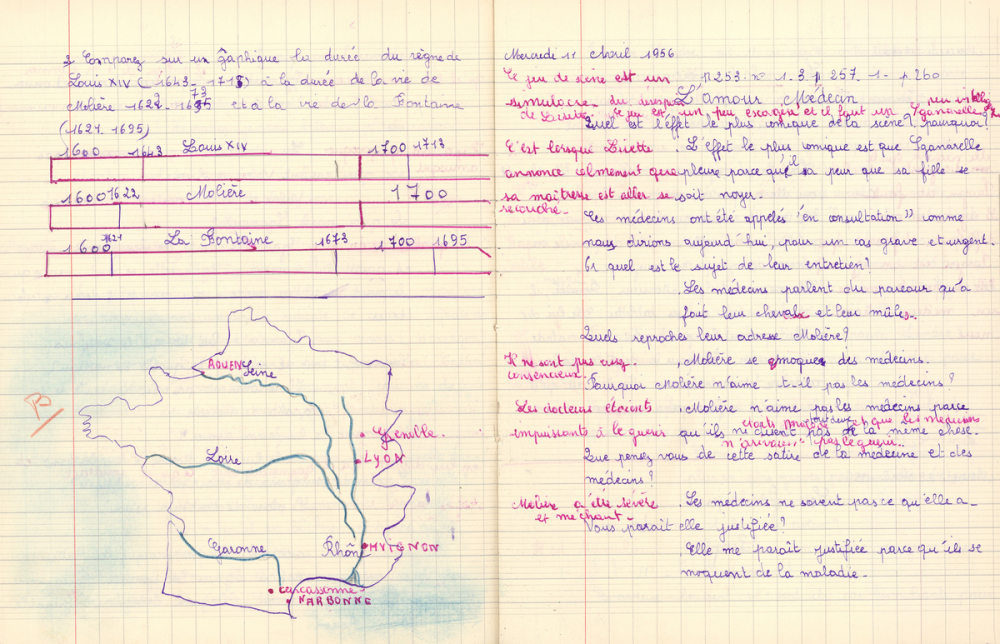 2 Comparez sur un gâphique la durée du règne de
Louis XIV (1643-1715) à la durée de la vie de
Molière 1622. 1673 et à la vie de la Fontaine
(1621. 1695)
1600 1643 Louis XIV 1700 1713
1600 1622 Molière 1700
1600 1621 La Fontaine 1673 1700 1695
ROUEN Seine
Grenille.
LYON
Loire
Garonne
Rhône AVIGNON
Carcassonne
NARBONNE
Mercredi 11 Avril 1956
Ce jeu de scène est un
p 253. n° 1. 3. p 257. 1- p. 260
simulacre du désespoir
L'amour Médecin
de Lucinde. Ce jeu est un peu exagéré et il faut un Sganarelle
Quel est l'effet le plus comique de la scène? pourquoi?
C'est lorsque Lisette
. L'effet le plus comique est que Sganarelle
annonce calmement que
pleure parce qu'il a peur que sa fille se
sa maîtresse est aller se
soit noyer.
recouché.
Les médecins ont été appelés "en consultation" comme
nous dirions aujourd'hui, pour un cas grave et urgent.
Or quel est le sujet de leur entretien?
. Les médecins parlent du parcour qu'a
fait leur chevaux et leur mûles.
Quels reproches leur adresse Molière?
Il ne sont pas
. Molière se moque des médecins.
consencieux.
Pourquoi Molière n'aime t-il pas les médecins?
Les docteurs étaients
. Molière n'aime pas les médecins parce
impuissants à le guérir
qu'ils ne disent pas de la même chose.
que les médecins
n'arrivai pas le guérir.
Que pensez vous de cette satire de la médecine et des
médecins?
Molière a été sévère
. Les médecins ne savent pas ce qu'elle a_
et méchant.
Vous paraît elle justifiée?
Elle me paraît justifiée parce qu'ils se
moquent de la maladie.